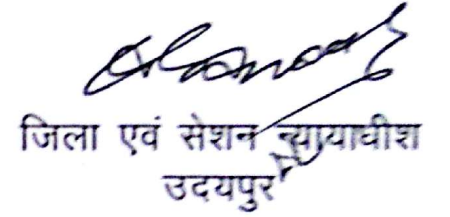 जिला एवं सेशन न्यायाधीश
उदयपुर